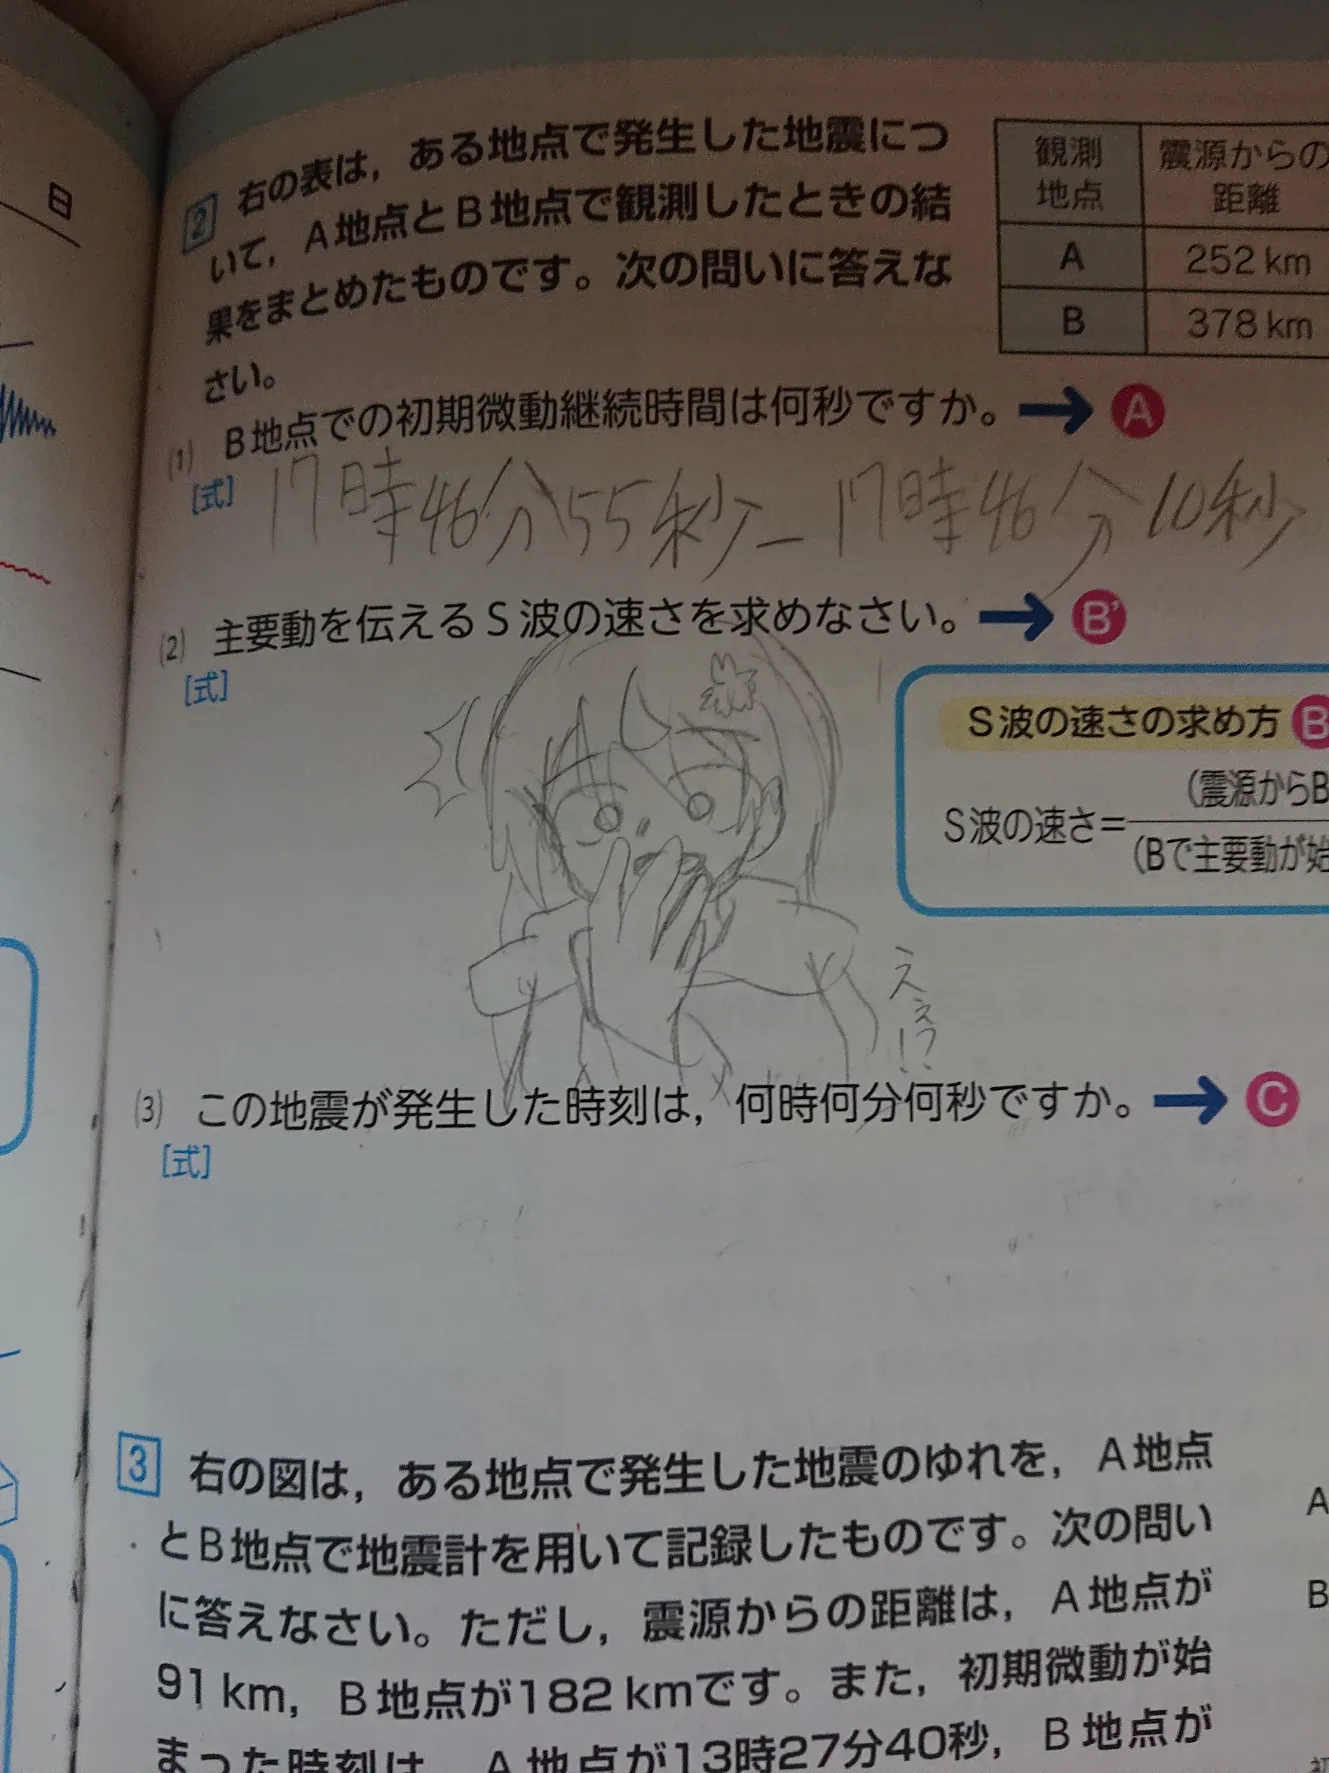 日
2 右の表は，ある地点で発生した地震につ
いて，A地点とB地点で観測したときの結
果をまとめたものです。次の問いに答えな
さい。
観測地点 震源からの距離
A 252 km
B 378 km
(1) B地点での初期微動継続時間は何秒ですか。→ A
[式] 17時46分55秒－17時46分10秒
(2) 主要動を伝えるS波の速さを求めなさい。→ B'
[式]
S波の速さの求め方 B
S波の速さ＝
(震源からB
(Bで主要動が始
ええ!?
(3) この地震が発生した時刻は，何時何分何秒ですか。→ C
[式]
3 右の図は，ある地点で発生した地震のゆれを，A地点
とB地点で地震計を用いて記録したものです。次の問い
に答えなさい。ただし，震源からの距離は，A地点が
91 km，B地点が182 kmです。また，初期微動が始
まった時刻は，A地点が13時27分40秒，B地点が
A
B
初